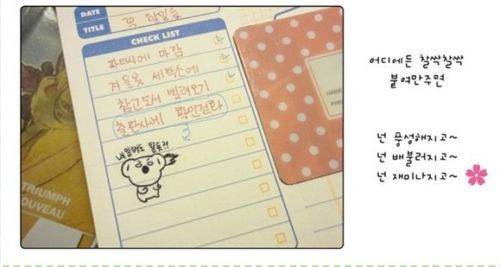 DATE
TITLE
CHECK LIST
파마씨에 마감
겨울옷 세탁소에
참고도서 빌려오기
출판사에 확인전화
TRIUMPH
NOUVEAU
어디에든 찰싹찰싹
붙여만주면
넌 풍성해지고~
넌 배불러지고~
넌 재미나지고~